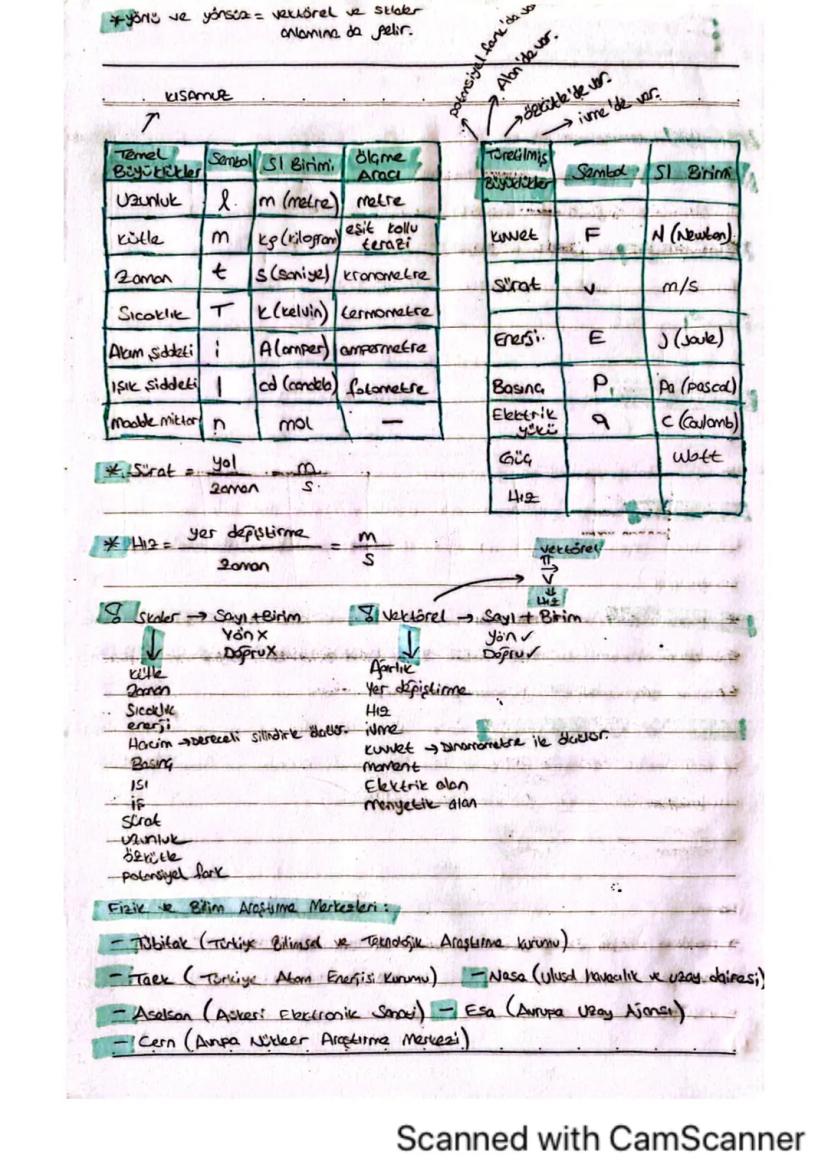 * yönlü ve yönsüz = vektörel ve skaler
anlamına da gelir.
KISAMUZ
potansiyel fark'da var
Alan'da var.
özkütle'de var.
ivme'de var.
Temel Büyüklükler Sembol SI Birimi Ölçme Aracı
Uzunluk l m (metre) metre
Kütle m kg (kilogram) eşit kollu terazi
Zaman t s (saniye) kronometre
Sıcaklık T K (kelvin) termometre
Akım şiddeti i A (amper) ampermetre
Işık şiddeti I cd (candela) fotometre
Madde miktarı n mol —
Türetilmiş Büyüklükler Sembol SI Birimi
Kuvvet F N (Newton)
Sürat v m/s
Enerji E J (joule)
Basınç P Pa (pascal)
Elektrik yükü q C (Coulomb)
Güç Watt
Hız
* Sürat = yol / zaman = m / s
* Hız = yer değiştirme / zaman = m / s
vektörel
v
Hız
Skaler → Sayı + Birim
Yön X
Doğru X
Kütle
Zaman
Sıcaklık
enerji
Hacim → Dereceli silindirle ölçülür.
Basınç
ISI
iş
Sürat
uzunluk
özkütle
potansiyel fark
Vektörel → Sayı + Birim
Yön ✓
Doğru ✓
Ağırlık
Yer değiştirme
Hız
ivme
kuvvet → Dinamometre ile ölçülür.
moment
Elektrik alan
menyetik alan
Fizik ve Bilim Araştırma Merkezleri:
– Tübitak (Türkiye Bilimsel ve Teknolojik Araştırma kurumu)
– Taek (Türkiye Atom Enerjisi Kurumu) – Nasa (Ulusal havacılık ve uzay dairesi)
– Aselsan (Askeri Elektronik Sanayi) – Esa (Avrupa Uzay Ajansı)
– Cern (Avrupa Nükleer Araştırma Merkezi)
Scanned with CamScanner